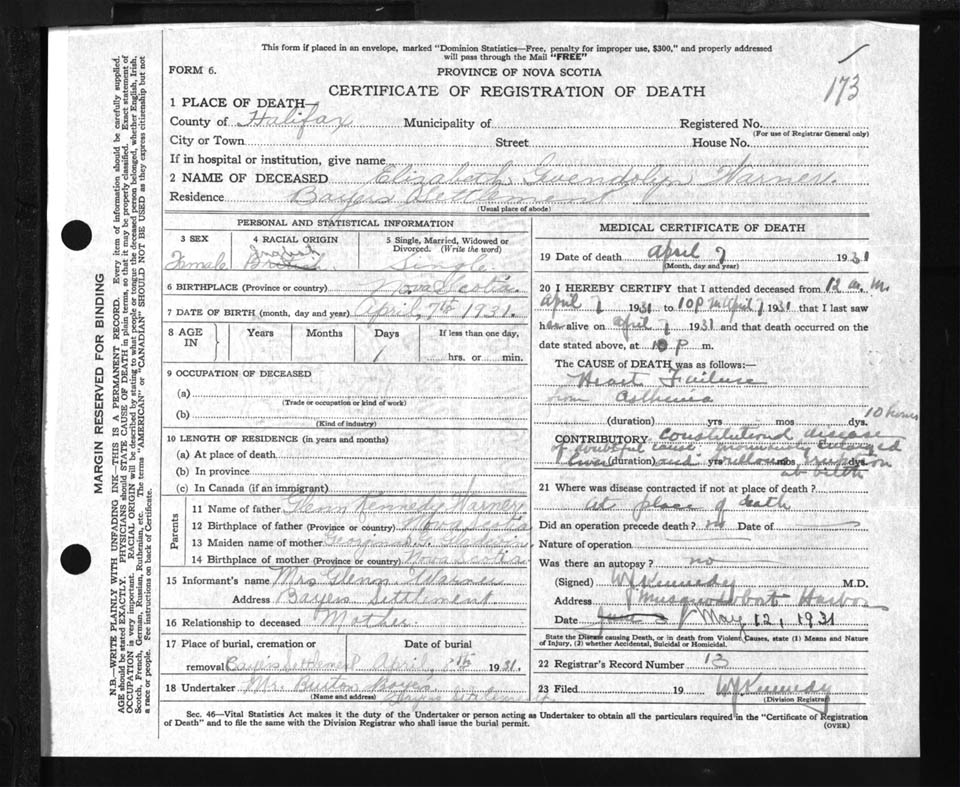 This form if placed in an envelope, marked "Dominion Statistics—Free, penalty for improper use, $300," and properly addressed
will pass through the Mail "FREE"
173
FORM 6.
PROVINCE OF NOVA SCOTIA
CERTIFICATE OF REGISTRATION OF DEATH
1 PLACE OF DEATH—
County of Halifax Municipality of Registered No.
(For use of Registrar General only)
City or Town Street House No.
If in hospital or institution, give name
2 NAME OF DECEASED Elizabeth Gwendolyn Warner
Residence Bayers Settlement
(Usual place of abode)
PERSONAL AND STATISTICAL INFORMATION
3 SEX 4 RACIAL ORIGIN 5 Single, Married, Widowed or
Divorced. (Write the word)
English
Female British Single.
6 BIRTHPLACE (Province or country) Nova Scotia
7 DATE OF BIRTH (month, day and year) April 7th 1931.
8 AGE IN Years Months Days If less than one day,
1 hrs. or min.
9 OCCUPATION OF DECEASED
(a)
(Trade or occupation or kind of work)
(b)
(Kind of industry)
10 LENGTH OF RESIDENCE (in years and months)
(a) At place of death
(b) In province
(c) In Canada (if an immigrant)
Parents
11 Name of father Glenn Kennedy Warner
12 Birthplace of father (Province or country) Nova Scotia
13 Maiden name of mother Georgina G. Gladwin
14 Birthplace of mother (Province or country) Nova Scotia
15 Informant's name Mrs Glenn Warner
Address Bayers Settlement
16 Relationship to deceased Mother
17 Place of burial, cremation or Date of burial
removal Bayers Settlement April 8th 1931.
18 Undertaker Mr. Burton Bayer
(Name and address) Bayers Settlement
MEDICAL CERTIFICATE OF DEATH
19 Date of death April 7 1931
(Month, day and year)
20 I HEREBY CERTIFY that I attended deceased from 12 a.m.
April 7 1931 to 10 P M April 7 1931 that I last saw
her alive on April 7 1931 and that death occurred on the
date stated above, at 10 P m.
The CAUSE OF DEATH was as follows:
Heart Failure
from Asthenia
(duration) yrs mos dys. 10 hours
CONTRIBUTORY Constitutional disease
of doubtful cause enlarged
Liver (duration) and yrs mos eruption dys
at birth
21 Where was disease contracted if not at place of death?
At place of death
Did an operation precede death? no Date of
Nature of operation
Was there an autopsy? no
(Signed) W J Kennedy M.D.
Address Musquodoboit Harbor
Date May 12, 1931
State the Disease causing Death, or in death from Violent Causes, state (1) Means and Nature
of Injury, (2) whether Accidental, Suicidal or Homicidal.
22 Registrar's Record Number 13
23 Filed 19 W J Kennedy
(Division Registrar)
Sec. 46—Vital Statistics Act makes it the duty of the Undertaker or person acting as Undertaker to obtain all the particulars required in the "Certificate of Registration
of Death" and to file the same with the Division Registrar who shall issue the burial permit.
(OVER)
MARGIN RESERVED FOR BINDING
N.B.—WRITE PLAINLY WITH UNFADING INK—THIS IS A PERMANENT RECORD. Every item of information should be carefully supplied.
AGE should be stated EXACTLY. PHYSICIANS should STATE CAUSE OF DEATH in plain terms, so that it may be properly classified. Exact statement of
OCCUPATION is very important. RACIAL ORIGIN will be described by stating to what people or tongue the deceased person belonged, whether English, Irish,
Scotch, French, German, Russian, Ruthenian, etc. The terms "AMERICAN" or "CANADIAN" SHOULD NOT BE USED as they express citizenship but not
a race or people. See instructions on back of Certificate.